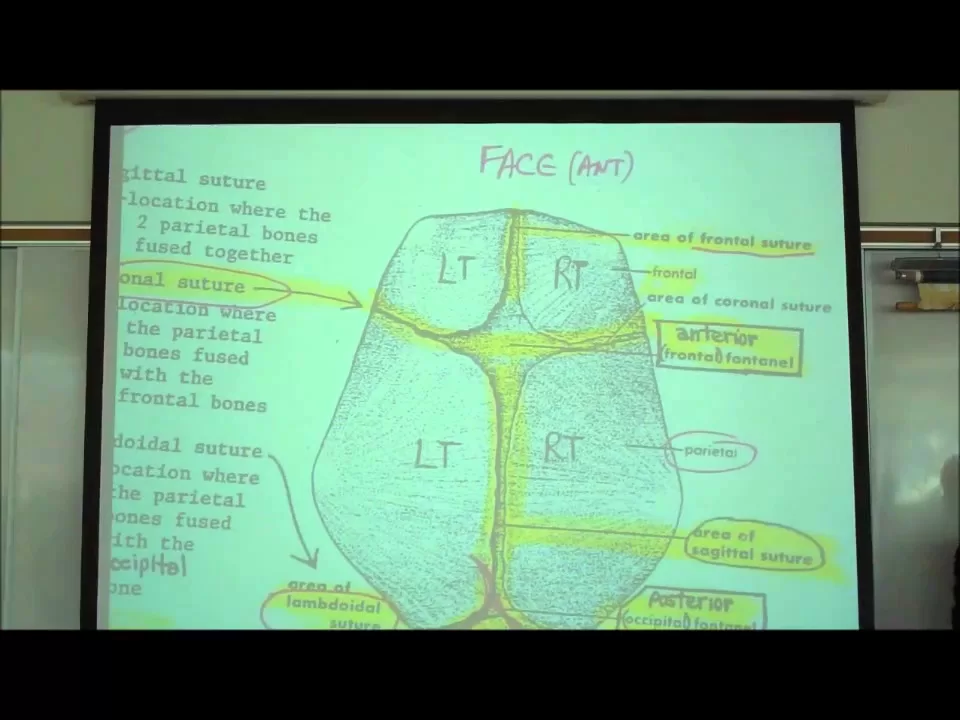 FACE (ANT)
gittal suture
-location where the
2 parietal bones
fused together
onal suture
location where
the parietal
bones fused
with the
frontal bones
doidal suture
ocation where
the parietal
ones fused
ith the
ccipital
one
LT
RT
LT
RT
area of frontal suture
frontal
area of coronal suture
anterior
(frontal) fontanel
parietal
area of
sagittal suture
area of
lambdoidal
suture
Posterior
(occipital) fontanel